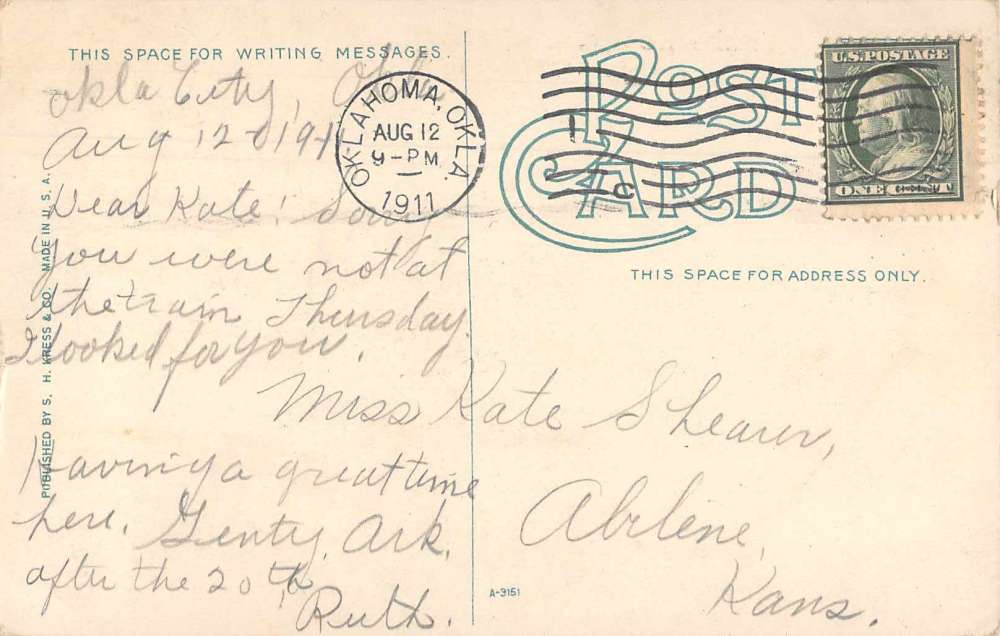 THIS SPACE FOR WRITING MESSAGES.
Okla City, Okla
Aug 12 - 1911
Dear Kate! Sorry
You were not at
the train Thursday.
I looked for you.
Having a great time
here. Gentry, Ark.
after the 20th
Ruth.
PUBLISHED BY S. H. KRESS & CO. MADE IN U. S. A.
OKLAHOMA, OKLA.
AUG 12
9-PM
1911
POST CARD
1
C
U.S. POSTAGE
ONE CENT
THIS SPACE FOR ADDRESS ONLY.
Miss Kate Shearer,
Abilene,
Kans.
A-3151